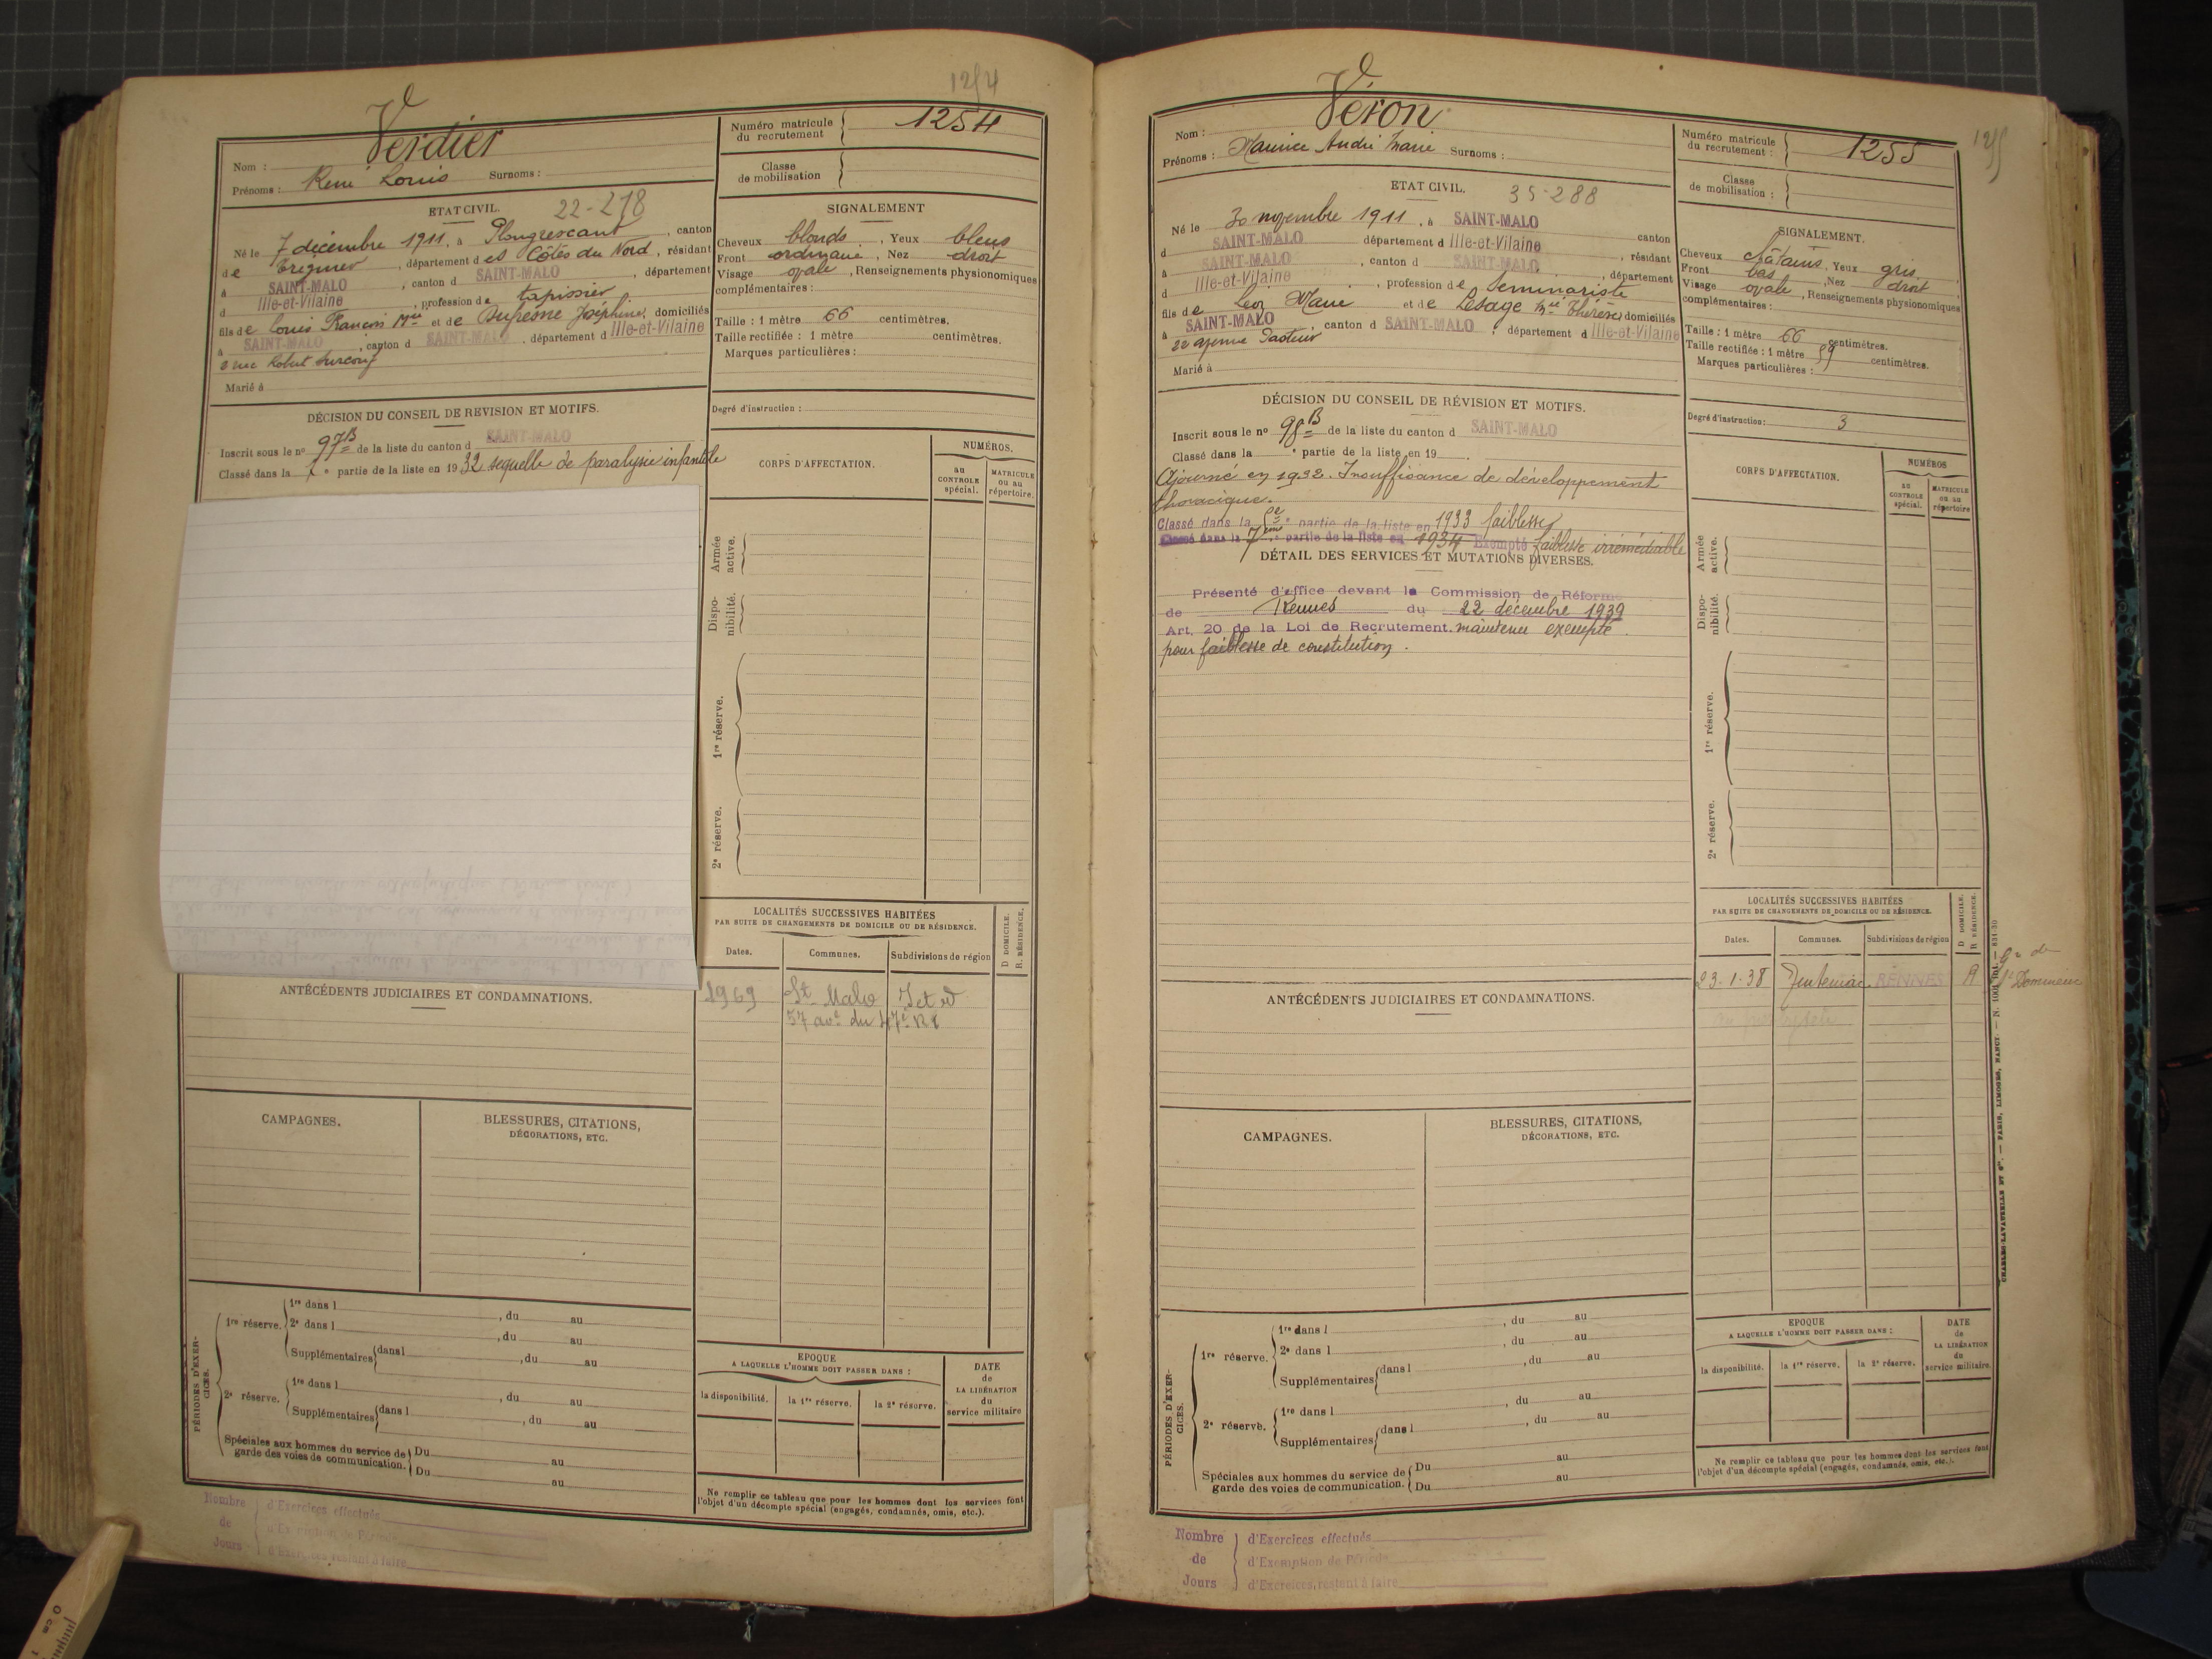 1254
Verdier
Nom :
Prénoms : René Louis Surnoms :
Numéro matricule du recrutement 1254
Classe de mobilisation
ETAT CIVIL. 22-278
Né le 7 décembre 1911, à Plougrescant, canton
de Tréguier, département des Côtes du Nord, résidant
à SAINT-MALO, canton d SAINT-MALO, département
d Ille-et-Vilaine, profession de tapissier
fils de Louis François Mie et de Dufresne Joséphine, domiciliés
à SAINT-MALO, canton d SAINT-MALO, département d Ille-et-Vilaine
2 rue Robert Surcouf
Marié à
SIGNALEMENT
Cheveux blonds, Yeux bleus
Front ordinaire, Nez droit
Visage ovale, Renseignements physionomiques
complémentaires :
Taille : 1 mètre 66 centimètres.
Taille rectifiée : 1 mètre centimètres.
Marques particulières :
Degré d'instruction :
DÉCISION DU CONSEIL DE REVISION ET MOTIFS.
Inscrit sous le no 97B de la liste du canton d SAINT-MALO
Classé dans la e partie de la liste en 1932 sequelle de paralysie infantile
CORPS D'AFFECTATION.
NUMÉROS.
au CONTROLE spécial.
MATRICULE ou au répertoire.
Armée active.
Disponibilité.
1re réserve.
2e réserve.
LOCALITÉS SUCCESSIVES HABITÉES
PAR SUITE DE CHANGEMENTS DE DOMICILE OU DE RÉSIDENCE.
D DOMICILE.
R. RÉSIDENCE.
Dates. Communes. Subdivisions de région
1969 St Malo I et V
57 ave du 47e RI
ANTÉCÉDENTS JUDICIAIRES ET CONDAMNATIONS.
CAMPAGNES.
BLESSURES, CITATIONS,
DÉCORATIONS, ETC.
PÉRIODES D'EXERCICES.
1re réserve. 1re dans l , du au
2e dans l , du au
Supplémentaires dans l , du au
2e réserve. 1re dans l , du au
Supplémentaires dans l , du au
Spéciales aux hommes du service de garde des voies de communication. Du au
Du au
EPOQUE
A LAQUELLE L'HOMME DOIT PASSER DANS :
la disponibilité. la 1re réserve. la 2e réserve.
DATE de LA LIBÉRATION du service militaire
Ne remplir ce tableau que pour les hommes dont les services font
l'objet d'un décompte spécial (engagés, condamnés, omis, etc.).
Nombre de Jours
d'Exercices effectués
d'Exemption de Période
d'Exercices restant à faire
Véron
Nom :
Prénoms : Maurice André Marie Surnoms :
Numéro matricule du recrutement : 1255
1255
Classe de mobilisation :
ETAT CIVIL. 35-288
Né le 30 novembre 1911, à SAINT-MALO
d SAINT-MALO département d Ille-et-Vilaine canton
à SAINT-MALO, canton d SAINT-MALO, résidant
d Ille-et-Vilaine, profession de Séminariste, département
fils de Léon Marie et de Lesage Mie Thérèse, domiciliés
à SAINT-MALO, canton d SAINT-MALO, département d Ille-et-Vilaine
22 avenue Pasteur
Marié à
SIGNALEMENT.
Cheveux châtains, Yeux gris
Front bas, Nez droit
Visage ovale, Renseignements physionomiques
complémentaires :
Taille : 1 mètre 66 centimètres.
Taille rectifiée : 1 mètre 59 centimètres.
Marques particulières :
Degré d'instruction : 3
DÉCISION DU CONSEIL DE RÉVISION ET MOTIFS.
Inscrit sous le no 98B de la liste du canton d SAINT-MALO
Classé dans la e partie de la liste en 19
Ajourné en 1932. Insuffisance de développement
thoracique.
Classé dans la e partie de la liste en 1933 faiblesse
Classé dans la 7eme partie de la liste en 1934 Exempté faiblesse irrémédiable
DÉTAIL DES SERVICES ET MUTATIONS DIVERSES.
Présenté d'office devant la Commission de Réforme
de Rennes du 22 décembre 1939
Art. 20 de la Loi de Recrutement. maintenu exempté
pour faiblesse de constitution.
CORPS D'AFFECTATION.
NUMÉROS
au CONTROLE spécial.
MATRICULE ou au répertoire
Armée active.
Disponibilité.
1re réserve.
2e réserve.
LOCALITÉS SUCCESSIVES HABITÉES
PAR SUITE DE CHANGEMENTS DE DOMICILE OU DE RÉSIDENCE.
D DOMICILE.
R RÉSIDENCE.
Dates. Communes. Subdivisions de région
23-1-38 Tinténiac RENNES R
St Domineuc
ANTÉCÉDENTS JUDICIAIRES ET CONDAMNATIONS.
CAMPAGNES.
BLESSURES, CITATIONS,
DÉCORATIONS, ETC.
PÉRIODES D'EXERCICES.
1re réserve. 1re dans l , du au
2e dans l , du au
Supplémentaires dans l , du au
2e réserve. 1re dans l , du au
Supplémentaires dans l , du au
Spéciales aux hommes du service de garde des voies de communication. Du au
Du au
EPOQUE
A LAQUELLE L'HOMME DOIT PASSER DANS :
la disponibilité. la 1re réserve. la 2e réserve.
DATE de LA LIBÉRATION du service militaire.
Ne remplir ce tableau que pour les hommes dont les services font
l'objet d'un décompte spécial (engagés, condamnés, omis, etc.).
CHARLES-LAVAUZELLE ET Cie. — PARIS, LIMOGES, NANCY.
Nombre de Jours
d'Exercices effectués
d'Exemption de Période
d'Exercices restant à faire
0 cm 1